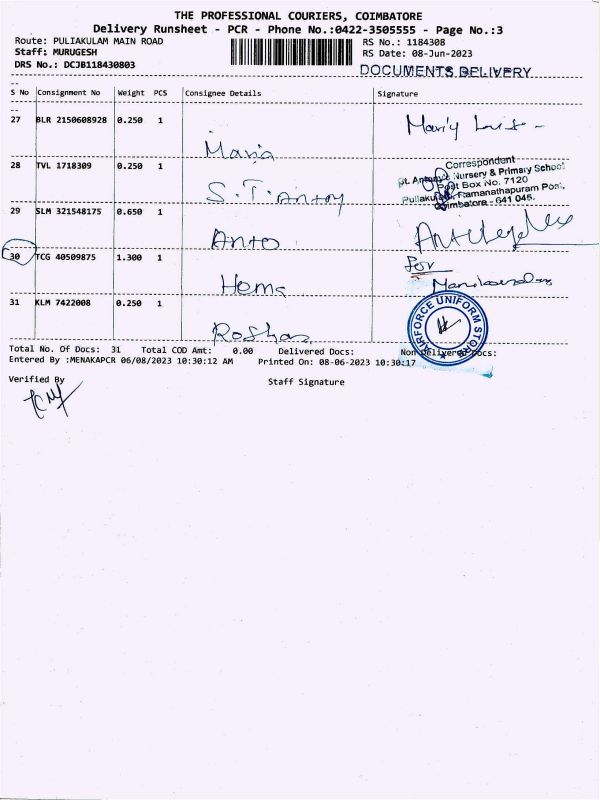 THE PROFESSIONAL COURIERS, COIMBATORE
Delivery Runsheet - PCR - Phone No.:0422-3505555 - Page No.:3
Route: PULIAKULAM MAIN ROAD
RS No.: 1184308
Staff: MURUGESH
RS Date: 08-Jun-2023
DRS No.: DCJB118430803
DOCUMENTS DELIVERY
S No Consignment No Weight PCS Consignee Details Signature
27 BLR 2150608928 0.250 1
Maria
28 TVL 1718309 0.250 1
S.T. Antony
Correspondent
St. Antony's Nursery & Primary School
Post Box No. 7120
Puliakulam, Ramanathapuram Post,
Coimbatore - 641 045.
29 SLM 321548175 0.650 1
Anto
30 TCG 40509875 1.300 1
Hema
for
31 KLM 7422008 0.250 1
Roshan
AIRFORCE UNIFORM STORE
Total No. Of Docs: 31 Total COD Amt: 0.00 Delivered Docs: Non Delivered Docs:
Entered By :MENAKAPCR 06/08/2023 10:30:12 AM Printed On: 08-06-2023 10:30:17
Verified By Staff Signature